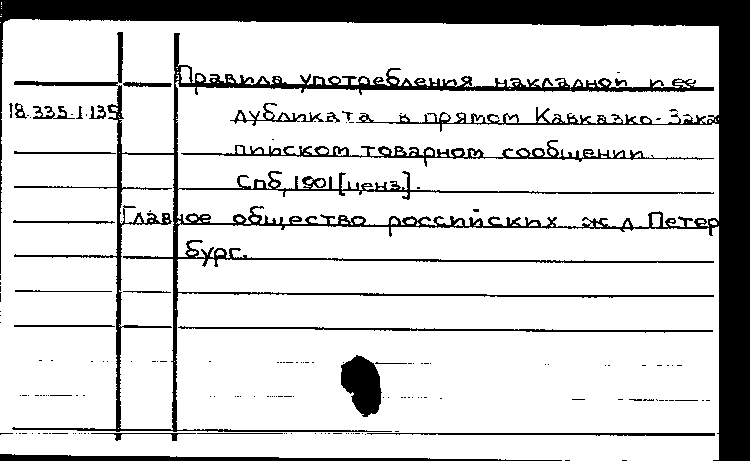 Правила употребления накладной и ее
18.335.1.135 дубликата в прямом Кавказко-Зака
спийском товарном сообщении.
Спб, 1901 [ценз.].
Главное общество российских ж.д. Петер
бург.